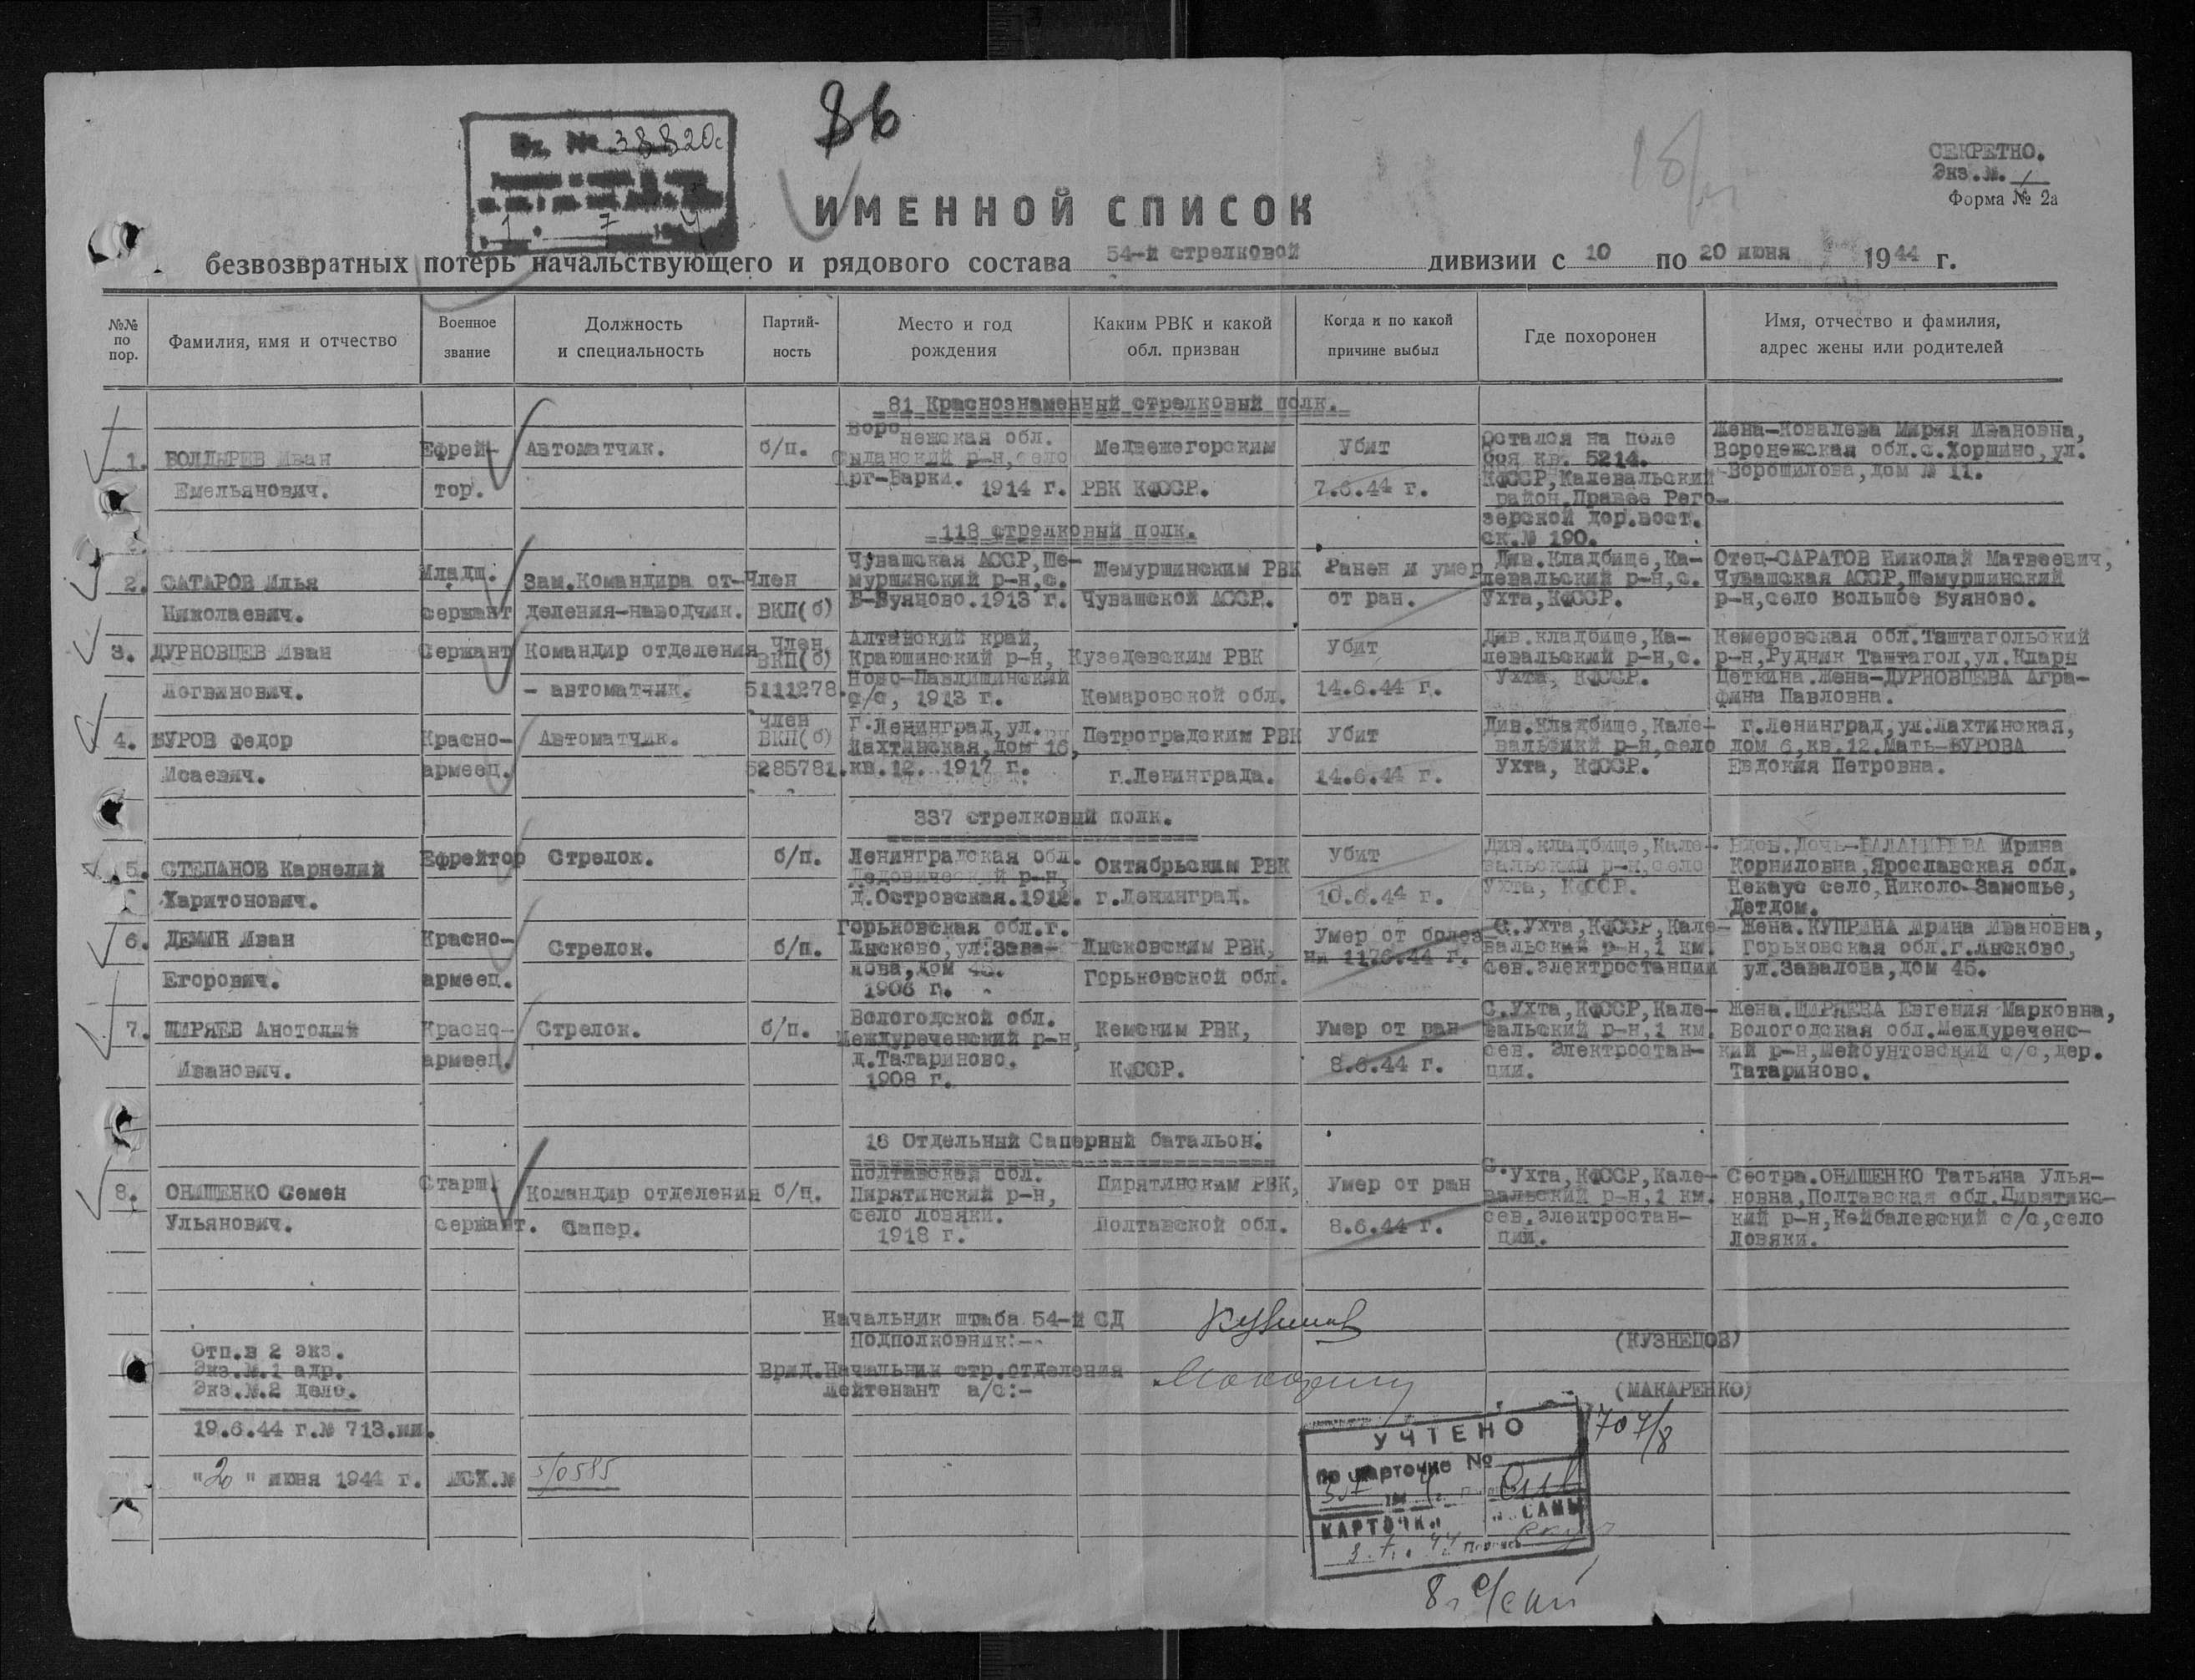 86
Вх. № 38820с
1 7 1944
СЕКРЕТНО.
Экз.№. 1
Форма № 2а
ИМЕННОЙ СПИСОК
безвозвратных потерь начальствующего и рядового состава 54-й стрелковой дивизии с 10 по 20 июня 1944 г.
№№ по пор.
Фамилия, имя и отчество
Военное звание
Должность и специальность
Партий-ность
Место и год рождения
Каким РВК и какой обл. призван
Когда и по какой причине выбыл
Где похоронен
Имя, отчество и фамилия, адрес жены или родителей
81 Краснознаменный стрелковый полк.
1. БОЛДЫРЕВ Иван
Емельянович.
Ефрей-
тор.
Автоматчик.
б/п.
Воро
нежская обл.
р-н, село
Арг-Барки. 1914 г.
Медвежегорским
РВК КФССР.
Убит
7.6.44 г.
Остался на поле
боя кв. 5214.
КФССР, Калевальский
район. Правее Рего-
зерской дор.вост.
ск.№ 190.
Жена-Ковалева Мария Ивановна,
Воронежская обл.с.Хоршино, ул.
Ворошилова, дом № 11.
118 стрелковый полк.
2. САТАРОВ Илья
Николаевич.
Младш.
сержант
Зам.Командира от-
деления-наводчик.
Член
ВКП(б)
Чувашская АССР, Ше-
муршинский р-н, с.
Б-Буяново. 1913 г.
Шемуршинским РВК
Чувашской АССР.
Ранен и умер
от ран.
Див.Кладбище, Ка-
левальский р-н, с.
Ухта, КФССР.
Отец-САРАТОВ Николай Матвеевич,
Чувашская АССР, Шемуршинский
р-н, село Большое Буяново.
3. ДУРНОВЦЕВ Иван
Логвинович.
Сержант
Командир отделения
- автоматчик.
Член
ВКП(б)
5111278.
Алтайский край,
Краюшинский р-н,
Ново-Павлишинский
с/с, 1913 г.
Кузедевским РВК
Кемаровской обл.
Убит
14.6.44 г.
Див.кладбище, Ка-
левальский р-н, с.
Ухта, КФССР.
Кемеровская обл.Таштагольский
р-н, Рудник Таштагол, ул.Клары
Цеткина. Жена-ДУРНОВЦЕВА Агра-
фина Павловна.
4. БУРОВ Федор
Исаевич.
Красно-
армеец.
Автоматчик.
Член
ВКП(б)
5285781.
Г.Ленинград, ул.
Лахтинская, дом 16,
кв.12. 1917 г.
Петроградским РВК
г.Ленинграда.
Убит
14.6.44 г.
Див.Кладбище, Кале-
вальсикй р-н, село
Ухта, КФССР.
г.Ленинград, ул.Лахтинская,
дом 6, кв.12. Мать-БУРОВА
Евдокия Петровна.
337 стрелковый полк.
5. СТЕПАНОВ Карнелий
Харитонович.
Ефрейтор
Стрелок.
б/п.
Ленинградская обл.
Дедовический р-н,
д.Островская. 1912.
Октябрьским РВК
г.Ленинград.
Убит
10.6.44 г.
Див.кладбище, Кале-
вальский р-н, село
Ухта, КФССР.
Вдов. Дочь- Ирина
Корниловна, Ярославская обл.
Пекаус село, Николо-Замошье,
Детдом.
6. ДЕМИН Иван
Егорович.
Красно-
армеец.
Стрелок.
б/п.
Горьковская обл.г.
Лысково, ул.Зава-
лова, дом 45.
1906 г.
Лысковским РВК,
Горьковской обл.
Умер от болез-
ни 11.6.44 г.
С.Ухта, КФССР, Кале-
вальский р-н, 1 км.
сев.электростанции
Жена.КУПРИНА Ирина Ивановна,
Горьковская обл.г.Лысково,
ул.Завалова, дом 45.
7. ШИРЯЕВ Анотолий
Иванович.
Красно-
армеец.
Стрелок.
б/п.
Вологодской обл.
Междуреченский р-н,
д.Татариново.
1908 г.
Кемским РВК,
КФССР.
Умер от ран
8.6.44 г.
С.Ухта, КФССР, Кале-
вальский р-н, 1 км.
сев. Электростан-
ции.
Жена.ШИРЯЕВА Евгения Марковна,
Вологодская обл.Междуреченс-
кий р-н, Шейбунтовский с/с, дер.
Татариново.
18 Отдельный Саперный батальон.
8. ОНИЩЕНКО Семен
Ульянович.
Старш.
сержант.
Командир отделения
Сапер.
б/п.
Полтавская обл.
Пирятинский р-н,
село Ловяки.
1918 г.
Пирятинским РВК,
Полтавской обл.
Умер от ран
8.6.44 г.
С.Ухта, КФССР, Кале-
вальский р-н, 1 км.
сев.электростан-
ции.
Сестра.ОНИЩЕНКО Татьяна Улья-
новна, Полтавская обл.Пирятинс-
кий р-н, Кейбалевский с/с, село
Ловяки.
Начальник штаба 54-й СД
Подполковник:-
(КУЗНЕЦОВ)
Врид.Начальник стр.отделения
Лейтенант а/с:-
(МАКАРЕНКО)
Отп.в 2 экз.
Экз.№.1 адр.
Экз.№.2 дело.
19.6.44 г.№ 713.мп.
"20" июня 1944 г. ИСХ.№ 5/0585
УЧТЕНО
по карточке №
707/8
КАРТОЧКИ
3.7.44 Подпись